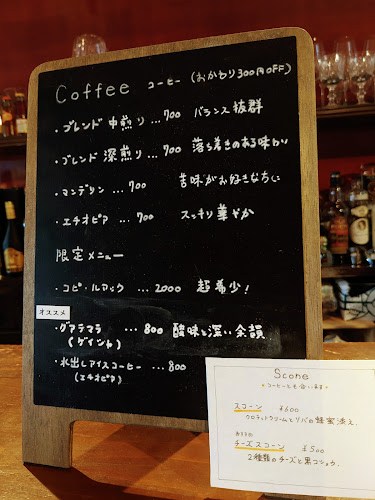 Coffee コーヒー (おかわり300円OFF)
・ブレンド 中煎り … 700 バランス抜群
・ブレンド 深煎り … 700 落ち着きのある味わい
・マンデリン … 700 苦味がお好きな方に
・エチオピア … 700 スッキリ華やか
限定メニュー
・コピ・ルアック … 2000 超希少!
オススメ
・グアテマラ … 800 酸味と深い余韻
(ゲイシャ)
・水出しアイスコーヒー … 800
(エチオピア)
Scone
コーヒーにも合います
スコーン ¥600
クロテッドクリームとリバの蜂蜜添え.
おすすめ
チーズスコーン ¥500
2種類のチーズと黒コショウ.